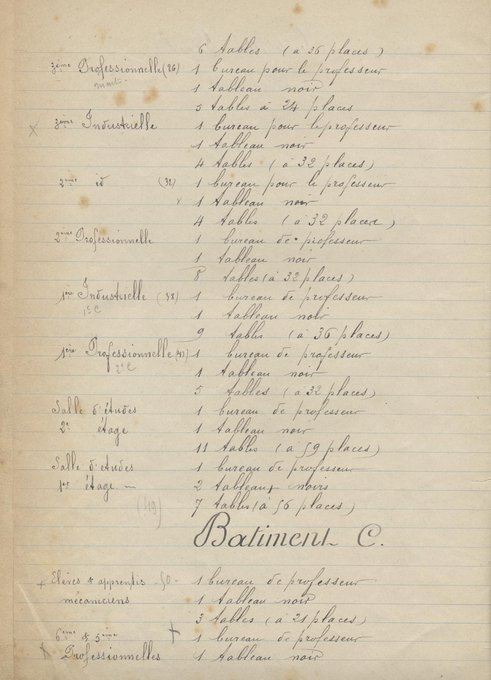 6 tables (à 36 places)
3ème Professionnelle (26) 1 bureau pour le professeur
1 tableau noir
5 tables à 24 places
3ème Industrielle 1 bureau pour le professeur
1 tableau noir
4 tables (à 32 places)
2ème id (32) 1 bureau pour le professeur
x 1 tableau noir
4 tables (à 32 places)
2ème Professionnelle 1 bureau de professeur
1 tableau noir
8 tables (à 32 places)
1ère Industrielle (38) 1 bureau de professeur
1 tableau noir
9 tables (à 36 places)
1ère Professionnelle 1 bureau de professeur
2e C 1 tableau noir
5 tables (à 32 places)
Salle d'études 1 bureau de professeur
2e étage 1 tableau noir
11 tables (à 59 places)
Salle d'etudes 1 bureau de professeur
1er étage — 2 tableaux noirs
(49) 7 tables (à 56 places)
Batiment C.
+ Elèves & apprentis -50- 1 bureau de professeur
mécaniciens 1 tableau noir
3 tables (à 21 places)
6ème & 5ème + 1 bureau de professeur
x Professionnelles 1 tableau noir